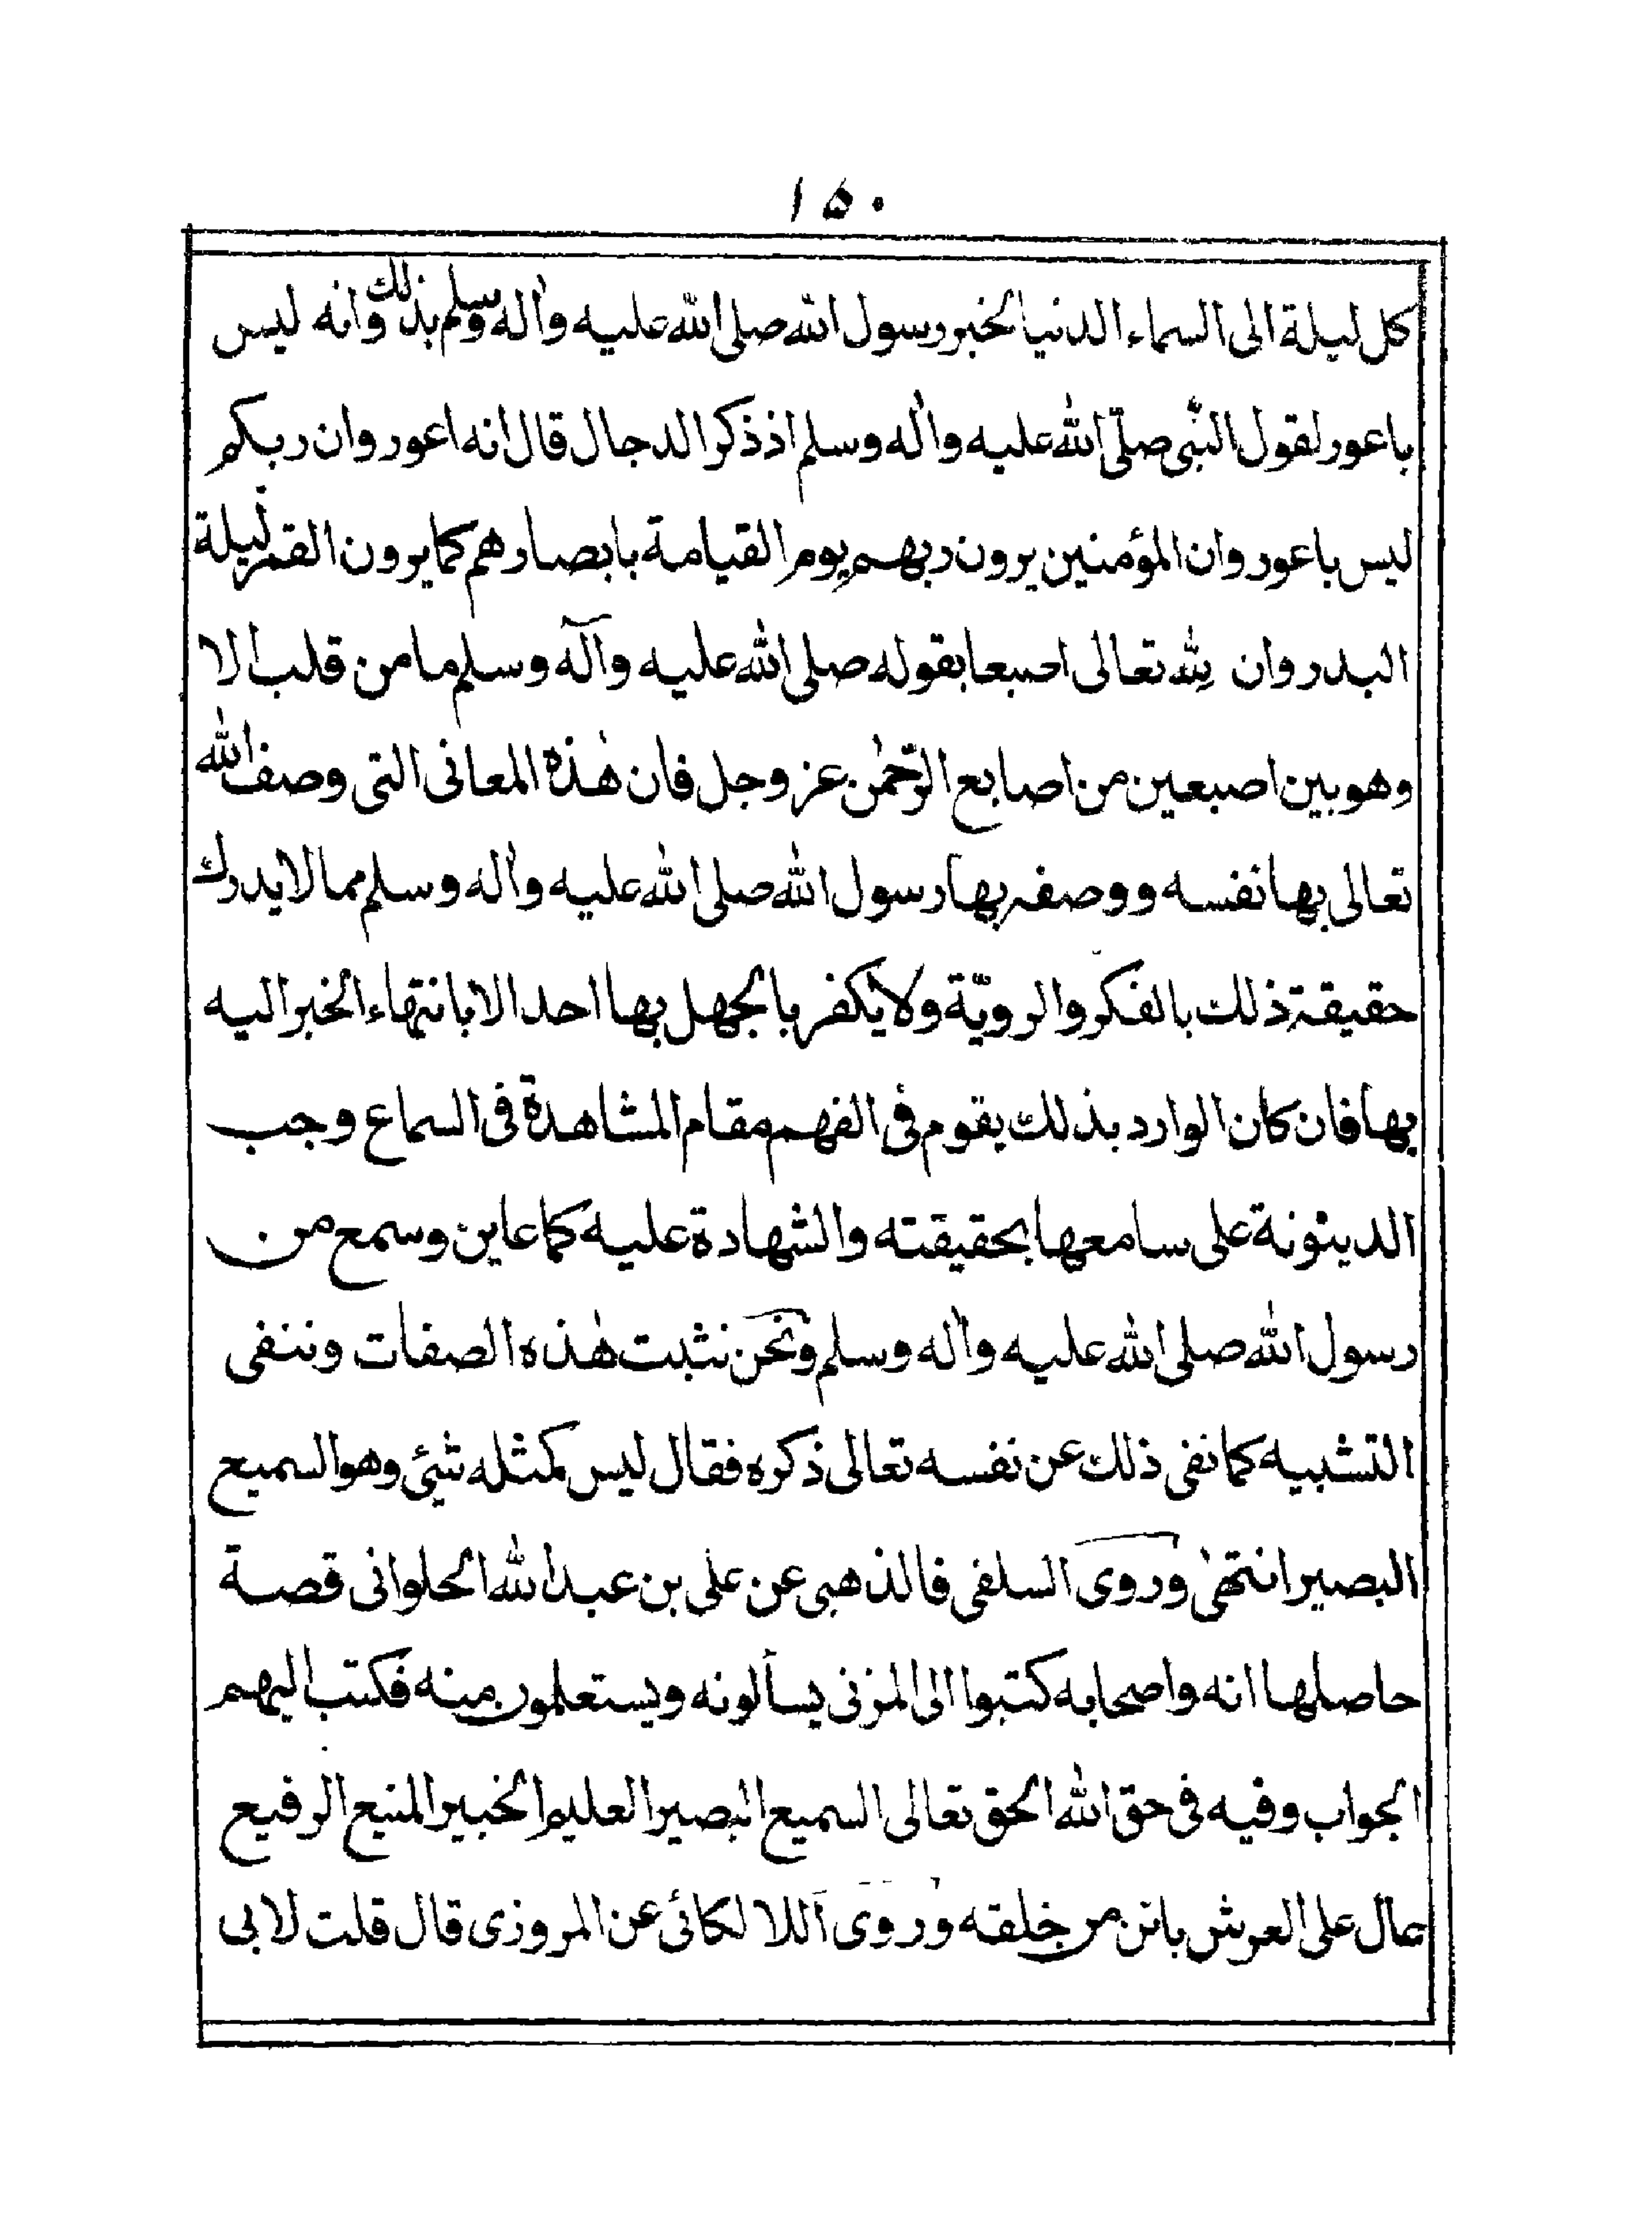 ۱۵۰
كل ليلة الى السماء الدنيا لخبر رسول الله صلى الله عليه واٰله وسلم بذلك وانه ليس
باعور لقول النّبى صلّى الله عليه واٰله وسلم اذ ذكر الدجال قال انه اعور وان ربكم
ليس باعور وان المؤمنين يرون ربهم يوم القيامة بابصارهم كما يرون القمر ليلة
البدر وان لله تعالى اصبعا بقوله صلى الله عليه وآله وسلم ما من قلب الا
وهو بين اصبعين من اصابع الرّحمٰن عز وجل فان هٰذه المعانى التى وصف الله
تعالى بها نفسه ووصفه بها رسول الله صلى الله عليه واٰله وسلم مما لا يدرك
حقيقة ذلك بالفكر والرويّة ولا يكفر بالجهل بها احد الا بانتهاء الخبر اليه
بها فان كان الوارد بذلك يقوم فى الفهم مقام المشاهدة فى السماع وجب
الدينونة على سامعها بحقيقته والشهادة عليه كما عاين وسمع من
رسول الله صلى الله عليه واٰله وسلم ونحن نثبت هٰذه الصفات وننفى
التشبيه كما نفى ذلك عن نفسه تعالى ذكره فقال ليس كمثله شئ وهو السميع
البصير انتهٰى وروى السلفى فالذهبى عن على بن عبد الله الحلوانى قصة
حاصلها انه واصحابه كتبوا الى المزنى يسألونه ويستعلمون منه فكتب اليهم
الجواب وفيه فى حق الله الحق تعالى السميع البصير العليم الخبير المنيع الرفيع
عال على العرش بائن من خلقه وروى اللالكائى عن المروزى قال قلت لابى